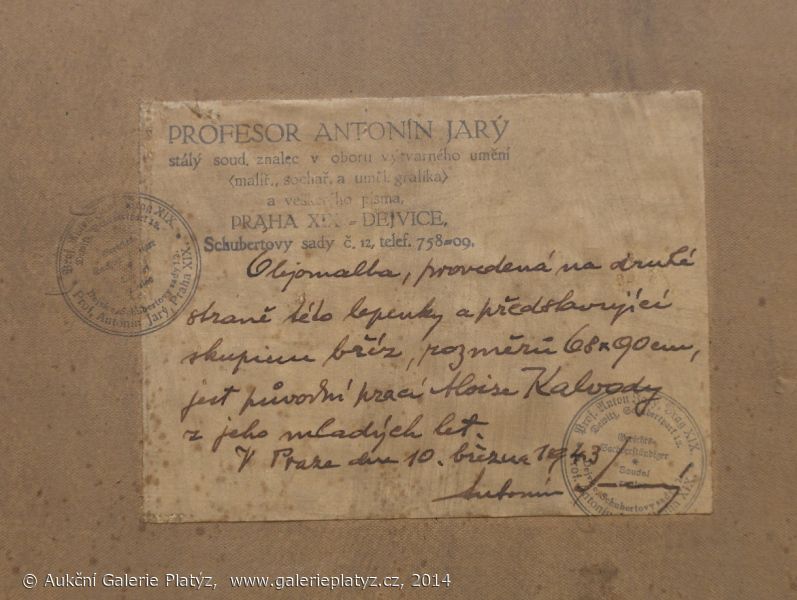 PROFESOR ANTONÍN JARÝ
stálý soud. znalec v oboru výtvarného umění
(malíř., sochař. a uměl. grafika)
a veškerého písma,
PRAHA XIX - DEJVICE,
Schubertovy sady č. 12, telef. 758=09.
Olejomalba, provedená na druhé
straně této lepenky a představující
skupinu bříz, rozměrů 68×90 cm,
jest původní prací Aloise Kalvody
z jeho mladých let.
V Praze dne 10. března 1943
Antonín
Prof. Antonín Jarý, Praha XIX.
Schubertovy sady 12.
Prof. Anton Jarý, Prag XIX.
Dewitz, Schubertpark 12.
Gerichts-
Sachverständiger
Soudní
Schubertovy sady 12.
© Aukční Galerie Platýz, www.galerieplatyz.cz, 2014